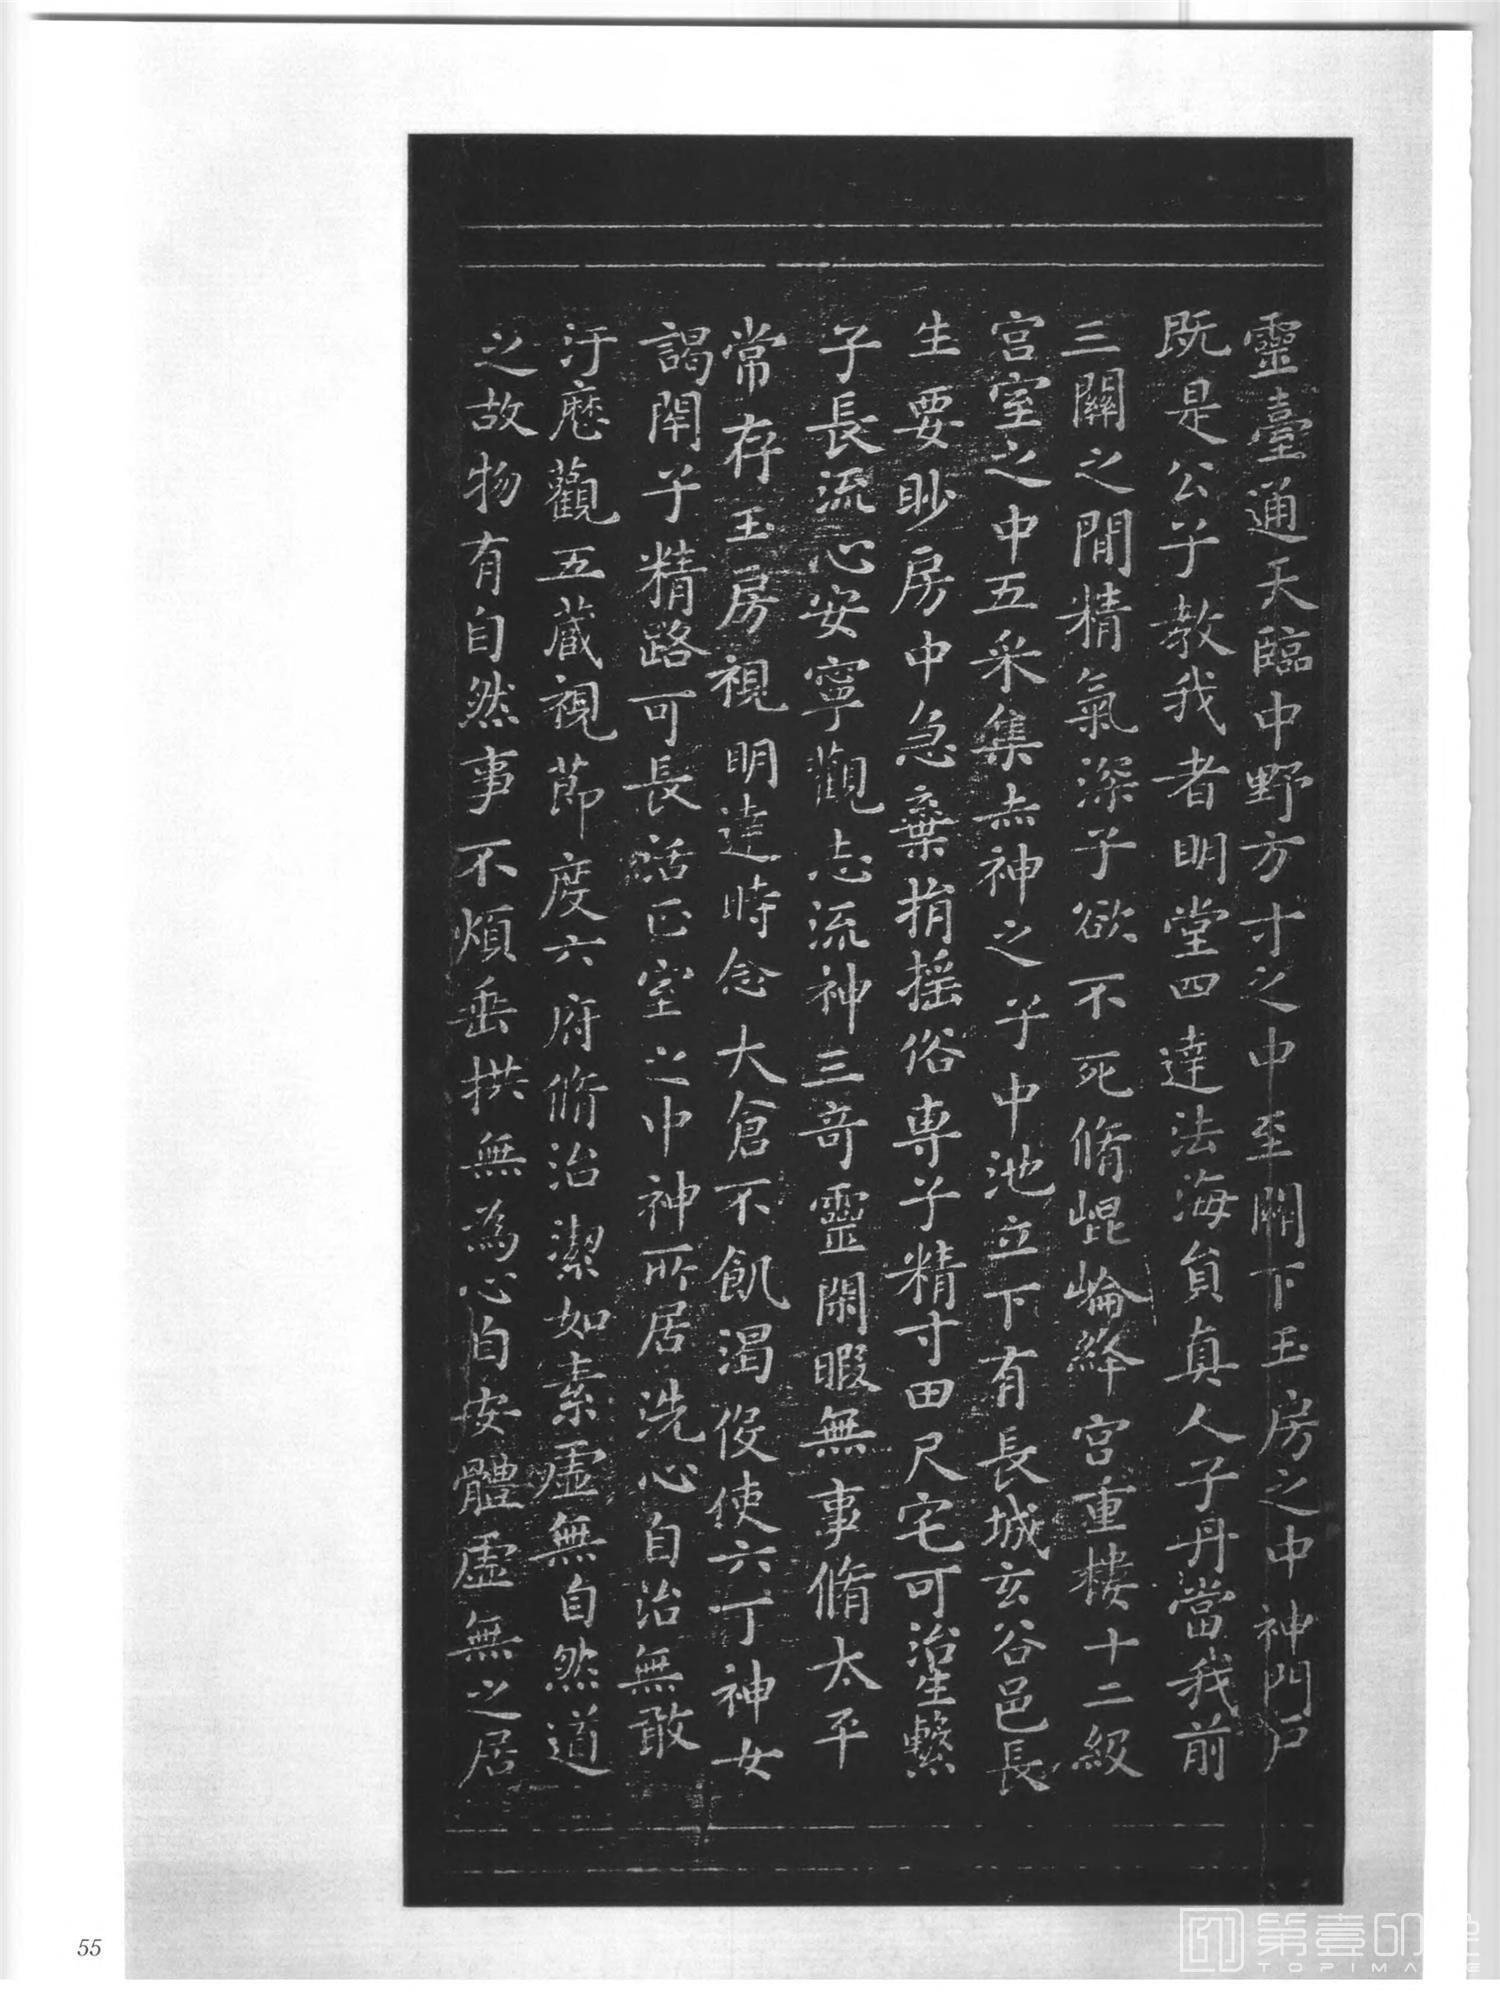 靈臺通天臨中野方寸之中至關下玉房之中神門戶
既是公子教我者明堂四達法海員真人子丹當我前
三關之間精氣深子欲不死脩崐崘絳宮重樓十二級
宮室之中五采集赤神之子中池立下有長城玄谷邑長
生要眇房中急棄捐搖俗專子精寸田尺宅可治生繫
子長流心安寧觀志流神三奇靈閑暇無事脩太平
常存玉房視明達時念大倉不飢渴伇使六丁神女
謁閇子精路可長活正室之中神所居洗心自治無敢
汙歷觀五藏視節度六府脩治潔如素虛無自然道
之故物有自然事不煩垂拱無為心自安體虛無之居
55
第壹印象
TOPIMAGE